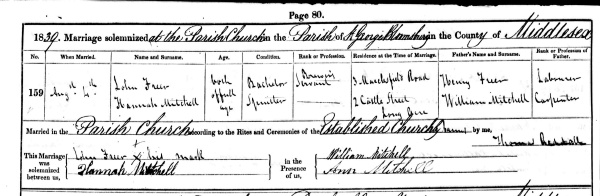 Page 80.
1839. Marriage solemnized at the Parish Church in the Parish of St George Bloomsbury in the County of Middlesex
No. When Married. Name and Surname. Age. Condition. Rank or Profession. Residence at the Time of Marriage. Father's Name and Surname. Rank or Profession of Father.
159 Augst 4th John Freer both of full age Bachelor Servant 3 Road Henry Freer Labourer
Hannah Mitchell Spinster 2 Castle Street Long Acre William Mitchell Carpenter
Married in the Parish Church according to the Rites and Ceremonies of the Established Church by me,
Thomas
This Marriage was solemnized between us, John Freer x his mark
Hannah Mitchell
in the Presence of us, William Mitchell
Ann Mitchell